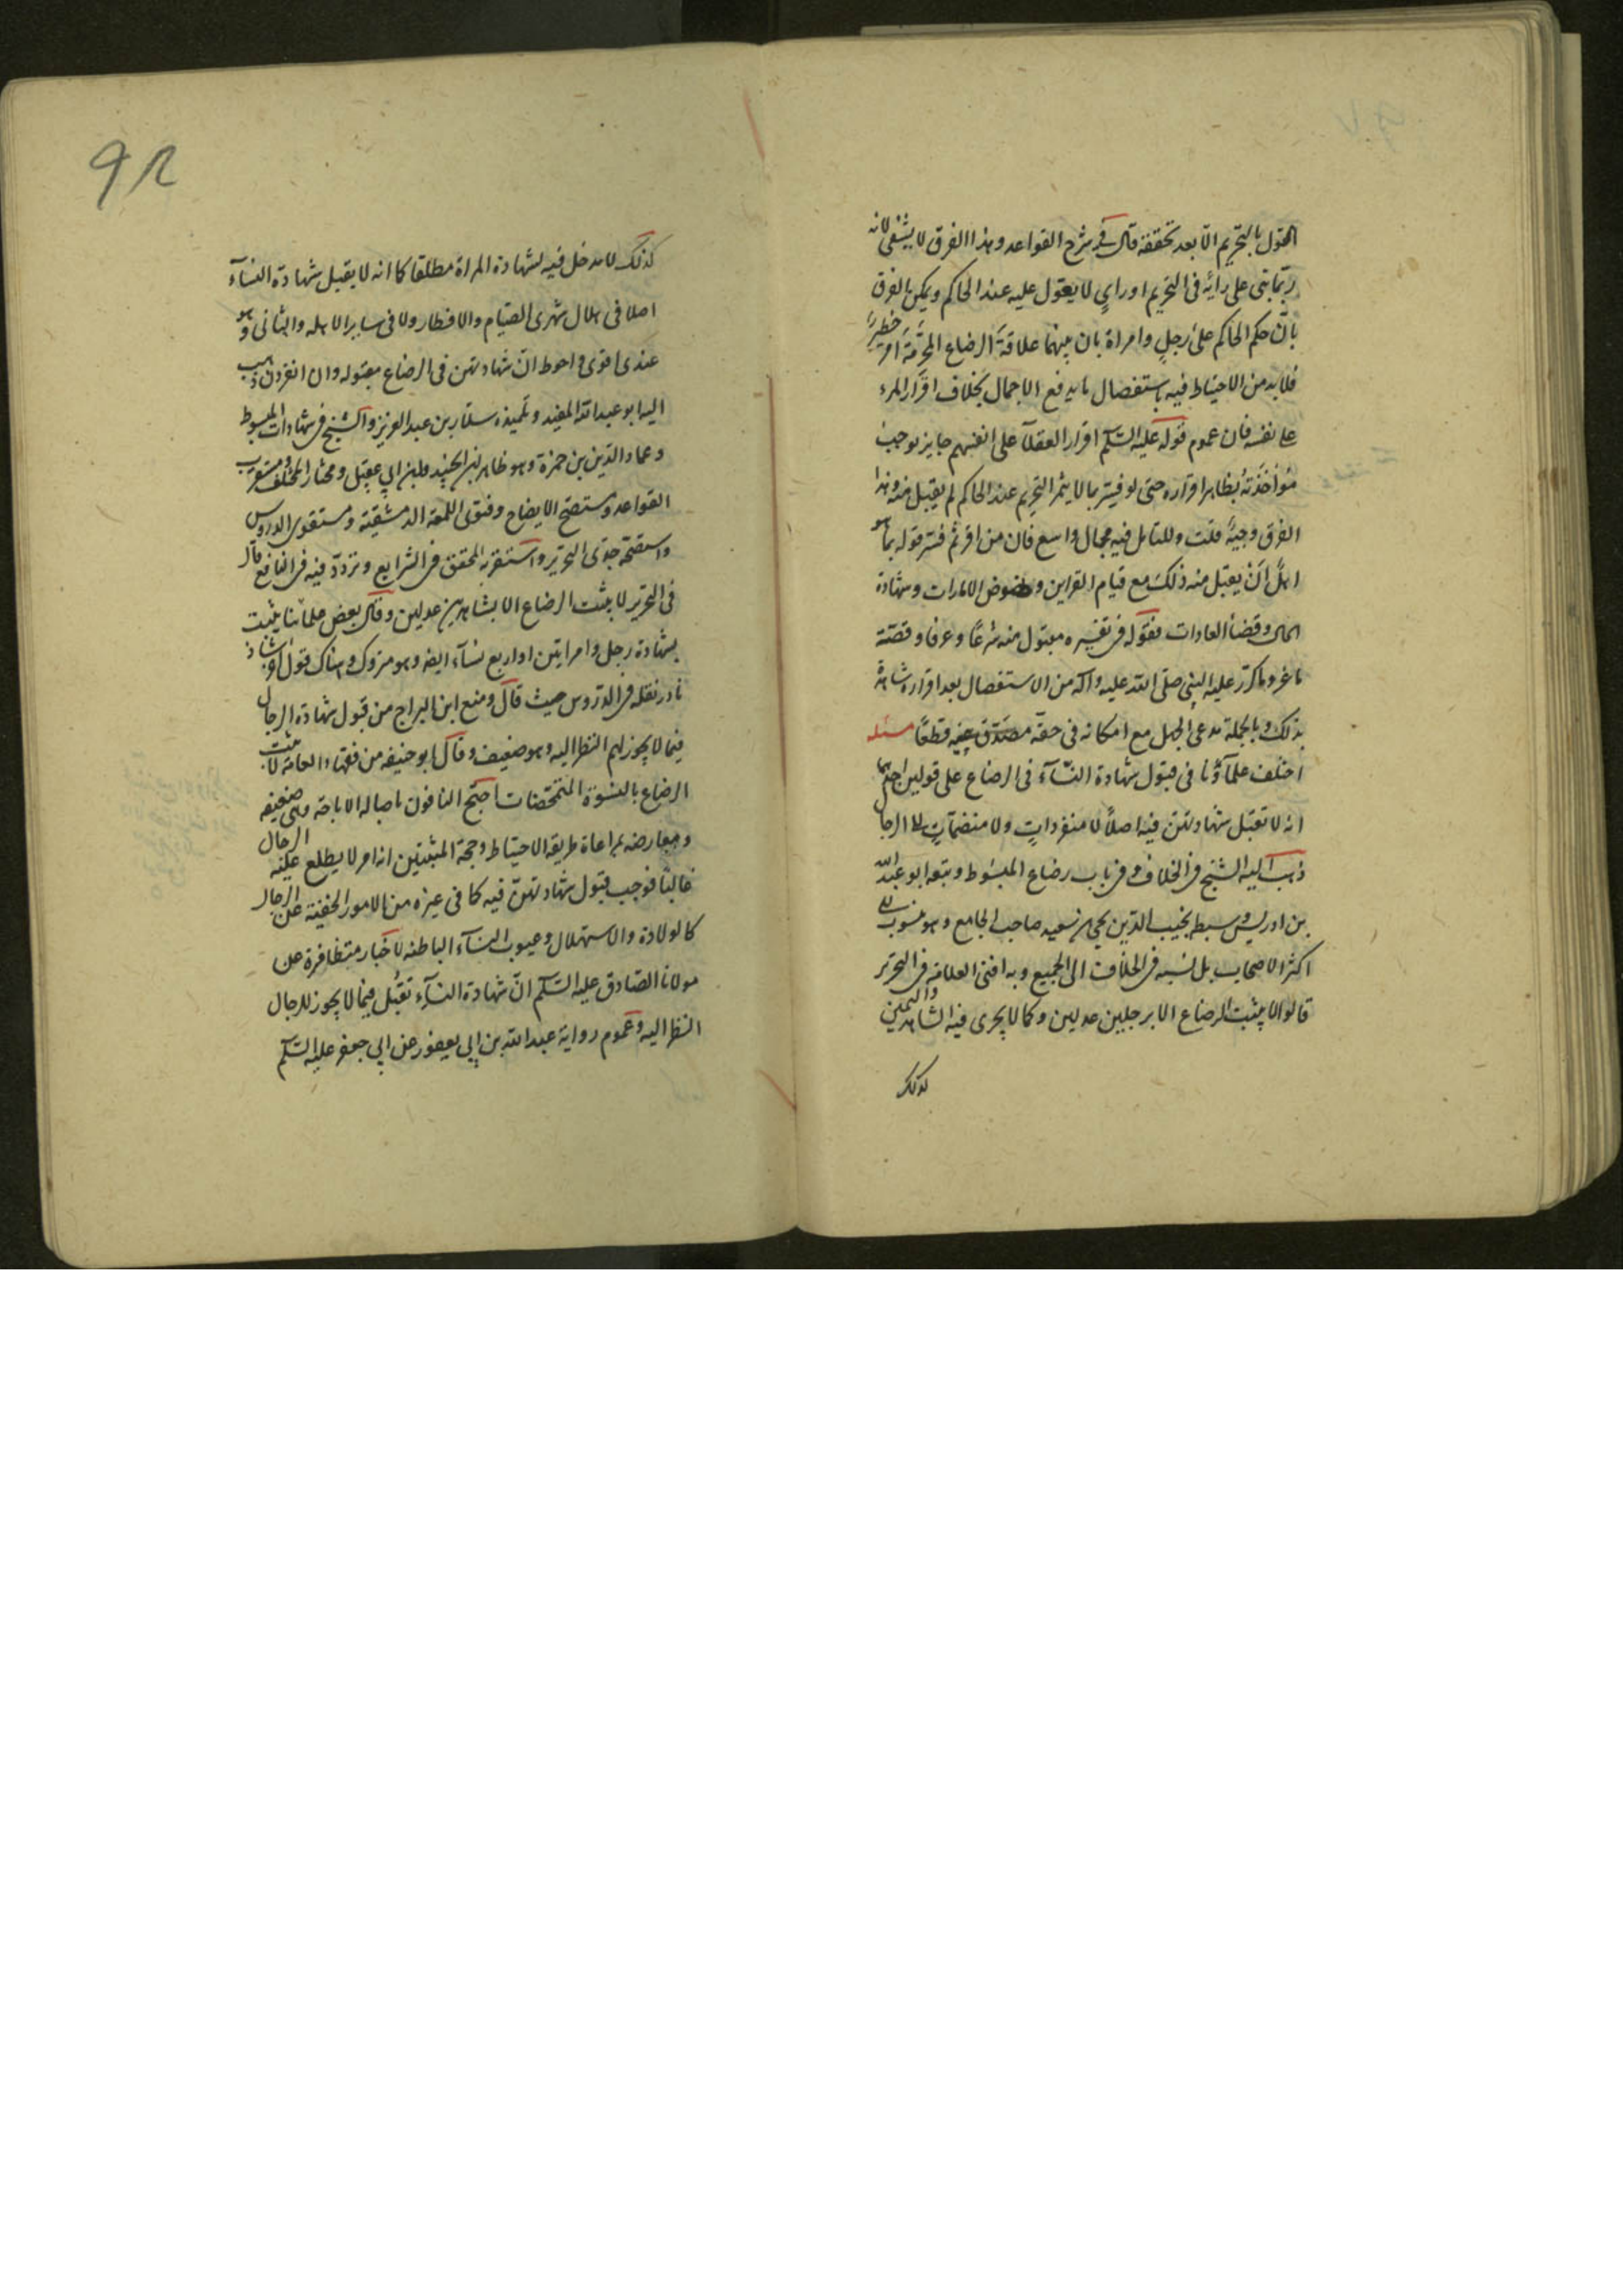 القول بالتحريم الا بعد تحققه قال في شرح القواعد وهذا الفرق لا يشفى لانه
ربما بنى على رأيه فى التحريم او راي لا يعول عليه عند الحاكم ويمكن الفرق
بانّ حكم الحاكم على رجل وامراة بان بينهما علاقة الرضاع المحرّمة امر خطير
فلا بد من الاحتياط فيه باستفصال ما يدفع الاجمال بخلاف اقرار المرء
على نفسه فان عموم قوله عليه السّلم اقرار العقلآ على انفسهم جايز يوجب
مؤاخذته بظاهر اقراره حتى لو فسّر بما لا يثمر التحريم عند الحاكم لم يقبل منه وهذا
الفرق وجيه قلت وللتامل فيه مجال واسع فان من اقر ثم فسّر قوله بما هو
اهل ان يقبل منه ذلك مع قيام القراين و الامارات وشهادة
الحال وقضأ العادات فقوله فى تفسيره مقبول منه شرعًا وعرفا وقصّة
ماغر وما كرّر عليه النبى صلى الله عليه وآله من الاستفصال بعد اقراره شاهدة
بذلك وبالجملة مدعى الجهل مع امكانه فى حقه مصدّق فيه قطعًا مسئله
اختلف علمآؤنا فى قبول شهادة النسآء فى الرضاع على قولين احدهما
انه لا تقبل شهادتهن فيه اصلًا لا منفرداتٍ ولا منضماتٍ الى الرجال
ذهب اليه الشيخ فى الخلاف وفى باب رضاع المبسوط وتبعه ابو عبد الله
بن ادريس وسبطه نجيب الدّين يحيى بن سعيد صاحب الجامع وهو منسوب الى
اكثر الاصحاب بل نسبه فى الخلاف الى الجميع وبه افتى العلامه فى التحرير
قالوا لا يثبت الرضاع الا برجلين عدلين وكما لا يجرى فيه الشاهد واليمين
كذلك
92
كذلك لا مدخل فيه لشهادة المراة مطلقا كما انه لا يقبل شهادة النسآء
اصلا فى هلال شهرى الصيام والافطار ولا فى ساير الاهله والثانى وهو
عندى اقوى واحوط انّ شهادتهن فى الرضاع مقبوله وان انفردن ذهب
اليه ابو عبد الله المفيد وتلميذه سلّار بن عبد العزيز والشيخ فى شهادات المبسوط
وعماد الدّين بن حمزة وهو ظاهر ابن الجنيد وابن ابي عقيل ومختار المختلف ومستقرب
القواعد ومستصح الايضاح وفتوى اللمعه الدمشقية ومستقوى الدروس
واستقربه المحقق فى الشرايع وتردّد فيه فى النافع قال
فى التحرير لا يثبت الرضاع الا بشاهدين عدلين وقال بعض علمائنا يثبت
بشهادة رجل وامرايتن او اربع نسآء ايضا وهو متروك وهناك قول اخر شاذ
نادر نقله فى الدّروس حيث قال ومنع ابن البراج من قبول شهادة الرجال
فيما لا يجوز لهم النظر اليه وهو ضعيف وقال ابو حنيفه من فقهاء العامه لا يثبت
الرضاع بالنسوة المتمحّضات احتج النافون باصاله الاباحه وهى ضعيفه
ومعارضه بمراعاة طريقه الاحتياط وحجة المثبتين انه امر لا يطلع عليه الرجال
غالبًا فوجب قبول شهادتهنّ فيه كما فى غيره من الامور الخفية عن الرجال
كالولادة والاستهلال وعيوب النسآء الباطنه لاخبار متظافرة عن
مولانا الصّادق عليه السّلم انّ شهادة النسآء تقبل فيما لا يجوز للرجال
النظر اليه وعموم رواية عبد الله بن ابي يعفور عن ابي جعفر عليه السّلم